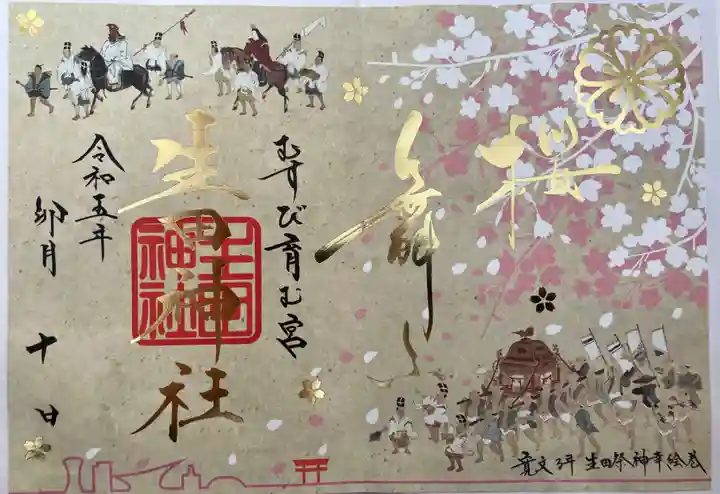 桜
舞し
むすび育む宮
生田神社
生田神社
令和五年
卯月
十日
生田祭神幸絵巻